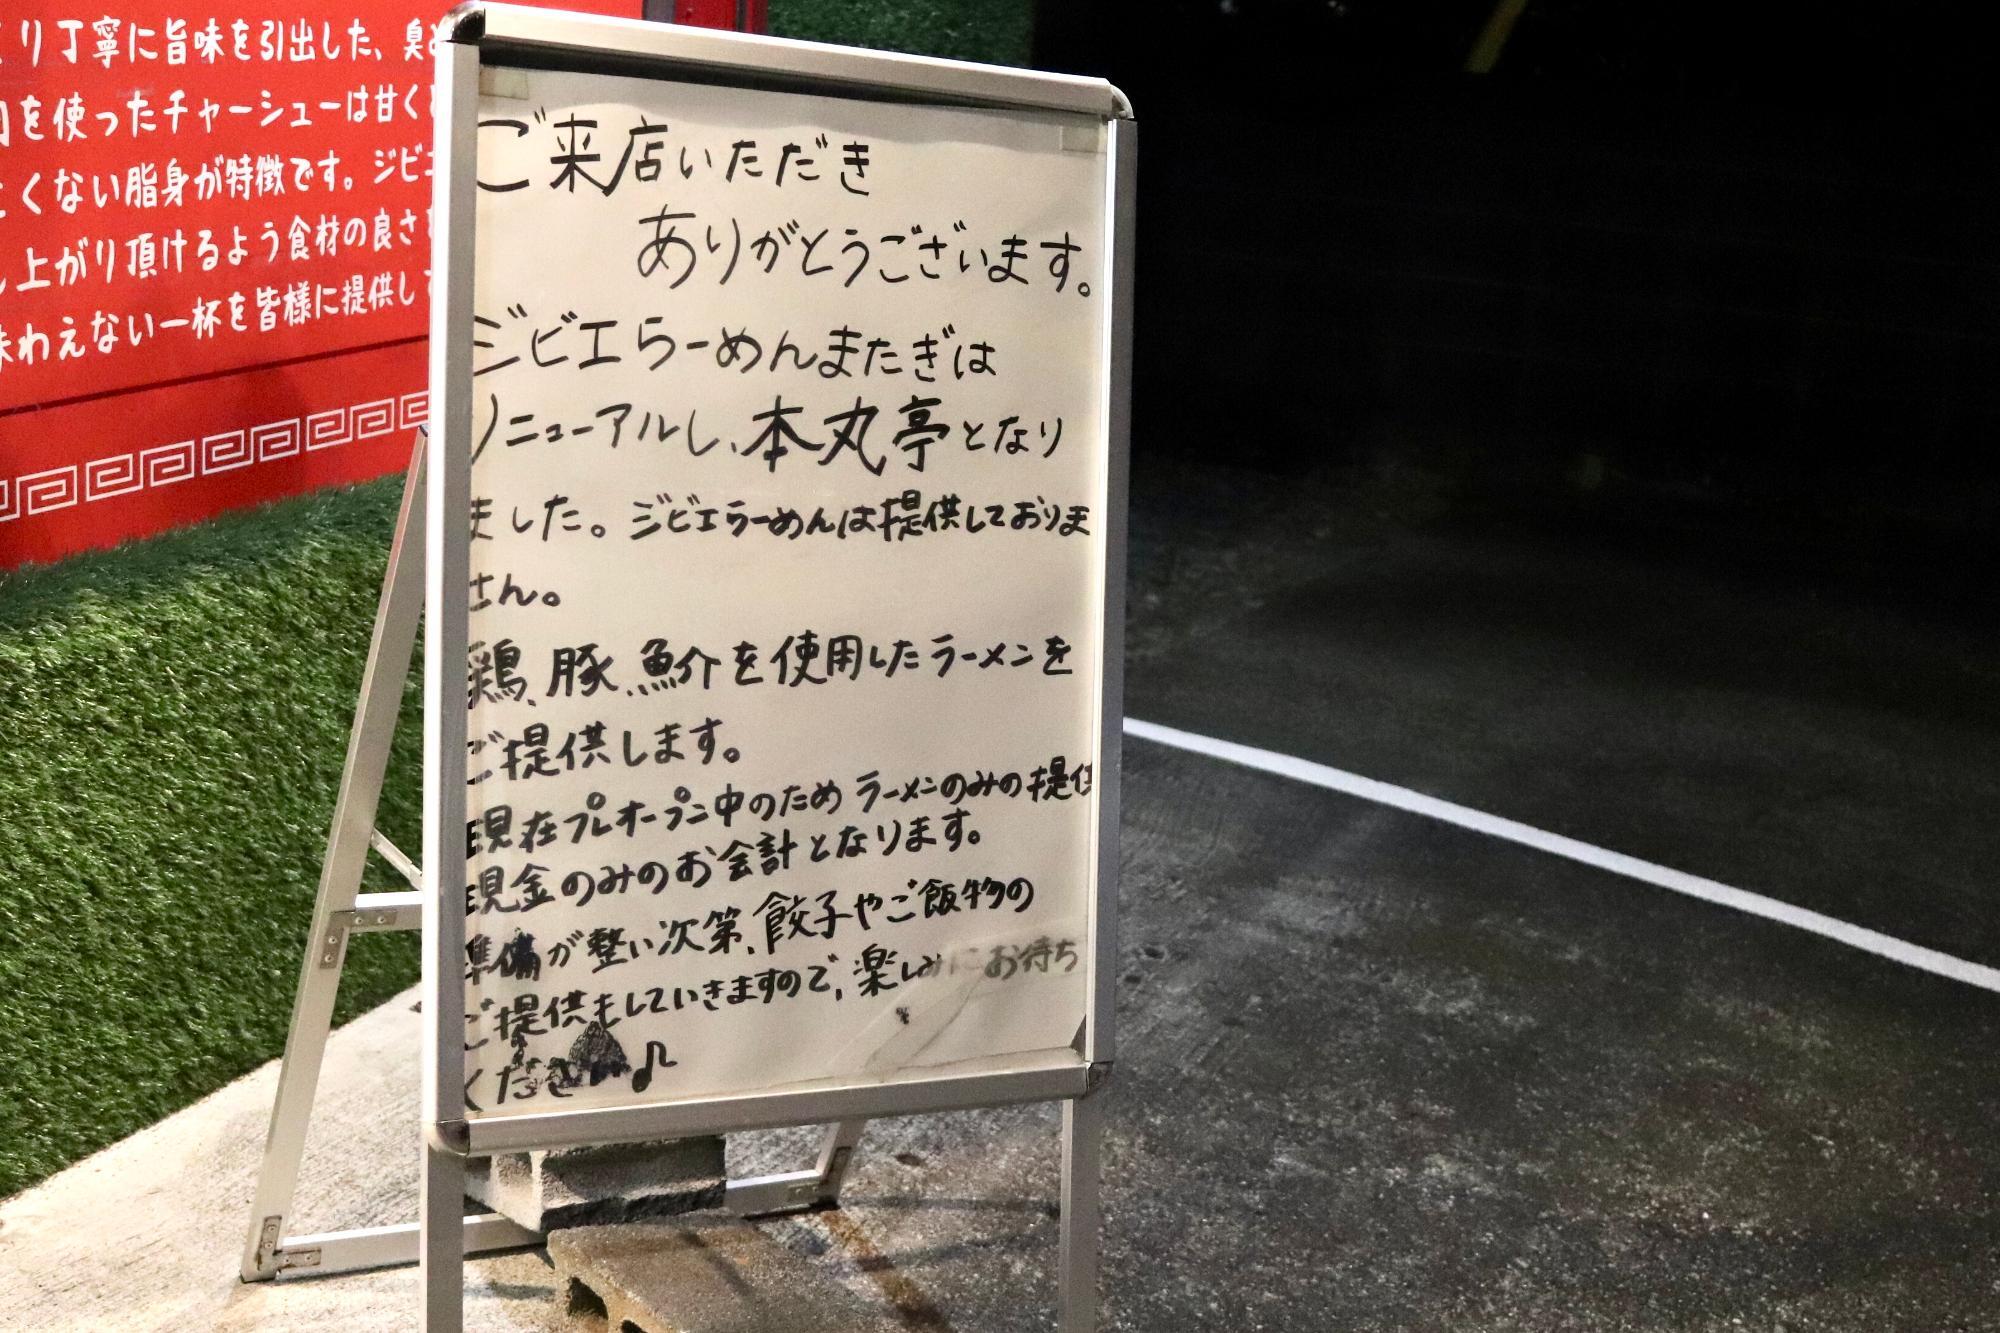 り丁寧に旨味を引出した、臭
を使ったチャーシューは甘く
くない脂身が特徴です。ジビエ
し上がり頂けるよう食材の良さ
味わえない一杯を皆様に提供し
ご来店いただき
ありがとうございます。
ジビエらーめんまたぎは
リニューアルし、本丸亭となり
ました。ジビエらーめんは提供しておりま
せん。
鶏、豚、魚介を使用したラーメンを
ご提供します。
現在プレオープン中のためラーメンのみの提供
現金のみのお会計となります。
準備が整い次第、餃子やご飯物の
ご提供もしていきますので、楽しみにお待ち
ください♪